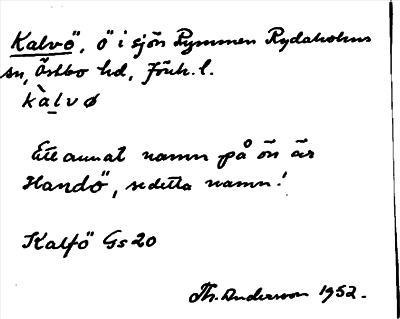 Kalvö, ö i sjön Rymmen Rydaholms
sn, Östbo hd, Jönk. l.
kàlvø
Ett annat namn på ön är
Handö, se detta namn!
Kalfö Gs 20
Th. Andersson 1952.